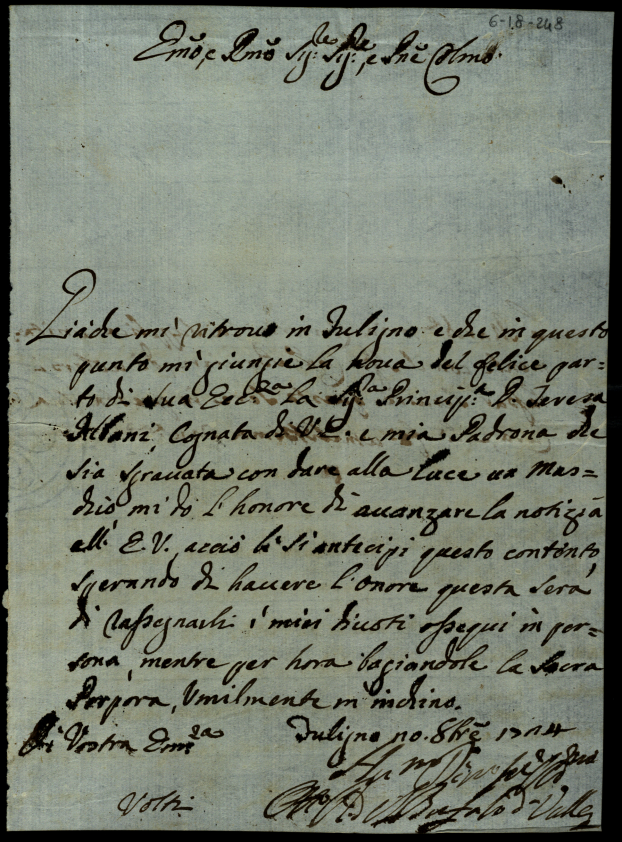 6-18-248
Emo, e Rmo Sigre Sigre, e Prne Colmo
Giache mi ritrovo in Fuligno e che in questo
punto mi giungie la nova del felice par=
to di sua Eccza la Siga Principa D. Teresa
Albani, Cognata di V.E. e mia Padrona che
sia sgravata con dare alla luce un Mas=
chio mi do l'honore di avanzare la notizia
all' E.V. acciò li si antecipi questo contento,
sperando di havere l'onore questa sera
di rassegnarli i miei divoti ossequi in per=
sona, mentre per hora bagiandole la Sacra
Porpora, Umilmente m'inchino.
Di Vostra Emza Fuligno no. 8bre
Volti